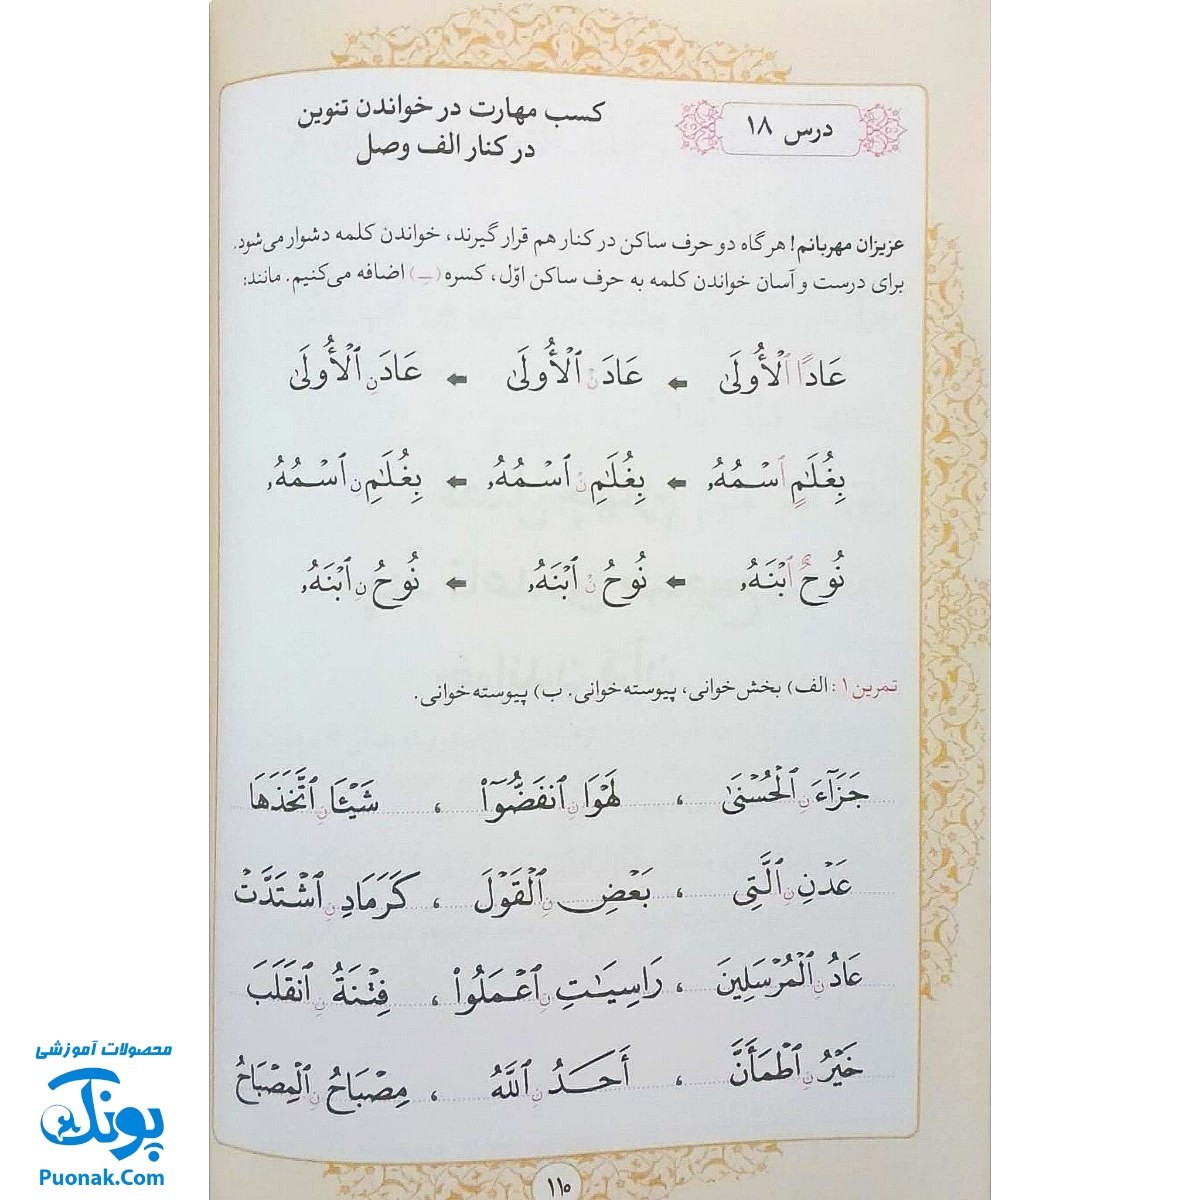 درس ۱۸
کسب مهارت در خواندن تنوین
در کنار الف وصل
عزیزان مهربانم! هرگاه دو حرف ساکن در کنار هم قرار گیرند، خواندن کلمه دشوار می‌شود.
برای درست و آسان خواندن کلمه به حرف ساکن اوّل، کسره (ـِ) اضافه می‌کنیم. مانند:
عَادًا ٱلْأُولَىٰ ← عَادَنْ ٱلْأُولَىٰ ← عَادَنِ ٱلْأُولَىٰ
بِغُلَـٰمٍ ٱسْمُهُۥ ← بِغُلَـٰمِنْ ٱسْمُهُۥ ← بِغُلَـٰمِنِ ٱسْمُهُۥ
نُوحٌ ٱبْنَهُۥ ← نُوحُنْ ٱبْنَهُۥ ← نُوحُنِ ٱبْنَهُۥ
تمرین ۱: الف) بخش‌خوانی، پیوسته‌خوانی. ب) پیوسته‌خوانی.
جَزَآءَنِ ٱلْحُسْنَىٰ ، لَهْوَانِ ٱنفَضُّوٓا۟ ، شَيْـَٔانِ ٱتَّخَذَهَا
عَدْنِنِ ٱلَّتِى ، بَعْضِنِ ٱلْقَوْلَ ، كَرَمَادِنِ ٱشْتَدَّتْ
عَادُنِ ٱلْمُرْسَلِينَ ، رَاسِيَـٰتِنِ ٱعْمَلُوا۟ ، فِتْنَةُنِ ٱنقَلَبَ
خَيْرُنِ ٱطْمَأَنَّ ، أَحَدُنِ ٱللَّهُ ، مِصْبَاحُنِ ٱلْمِصْبَاحُ
۱۱۰
محصولات آموزشی
پونک
Puonak.Com